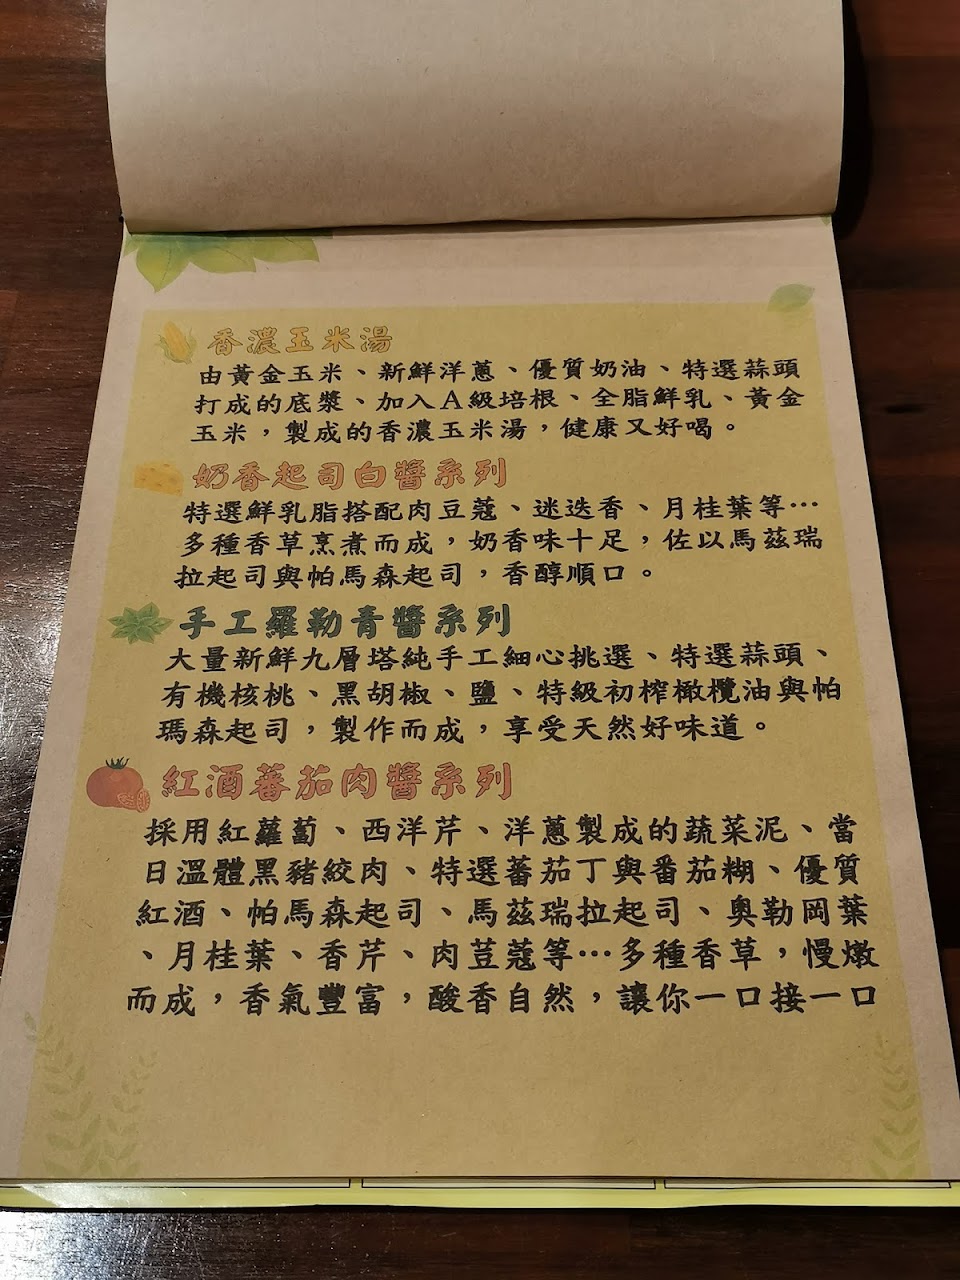 香濃玉米湯
由黃金玉米、新鮮洋蔥、優質奶油、特選蒜頭
打成的底漿、加入A級培根、全脂鮮乳、黃金
玉米，製成的香濃玉米湯，健康又好喝。
奶香起司白醬系列
特選鮮乳脂搭配肉豆蔻、迷迭香、月桂葉等…
多種香草烹煮而成，奶香味十足，佐以馬茲瑞
拉起司與帕馬森起司，香醇順口。
手工羅勒青醬系列
大量新鮮九層塔純手工細心挑選、特選蒜頭、
有機核桃、黑胡椒、鹽、特級初榨橄欖油與帕
瑪森起司，製作而成，享受天然好味道。
紅酒蕃茄肉醬系列
採用紅蘿蔔、西洋芹、洋蔥製成的蔬菜泥、當
日溫體黑豬絞肉、特選蕃茄丁與番茄糊、優質
紅酒、帕馬森起司、馬茲瑞拉起司、奧勒岡葉
、月桂葉、香芹、肉荳蔻等…多種香草，慢燉
而成，香氣豐富，酸香自然，讓你一口接一口